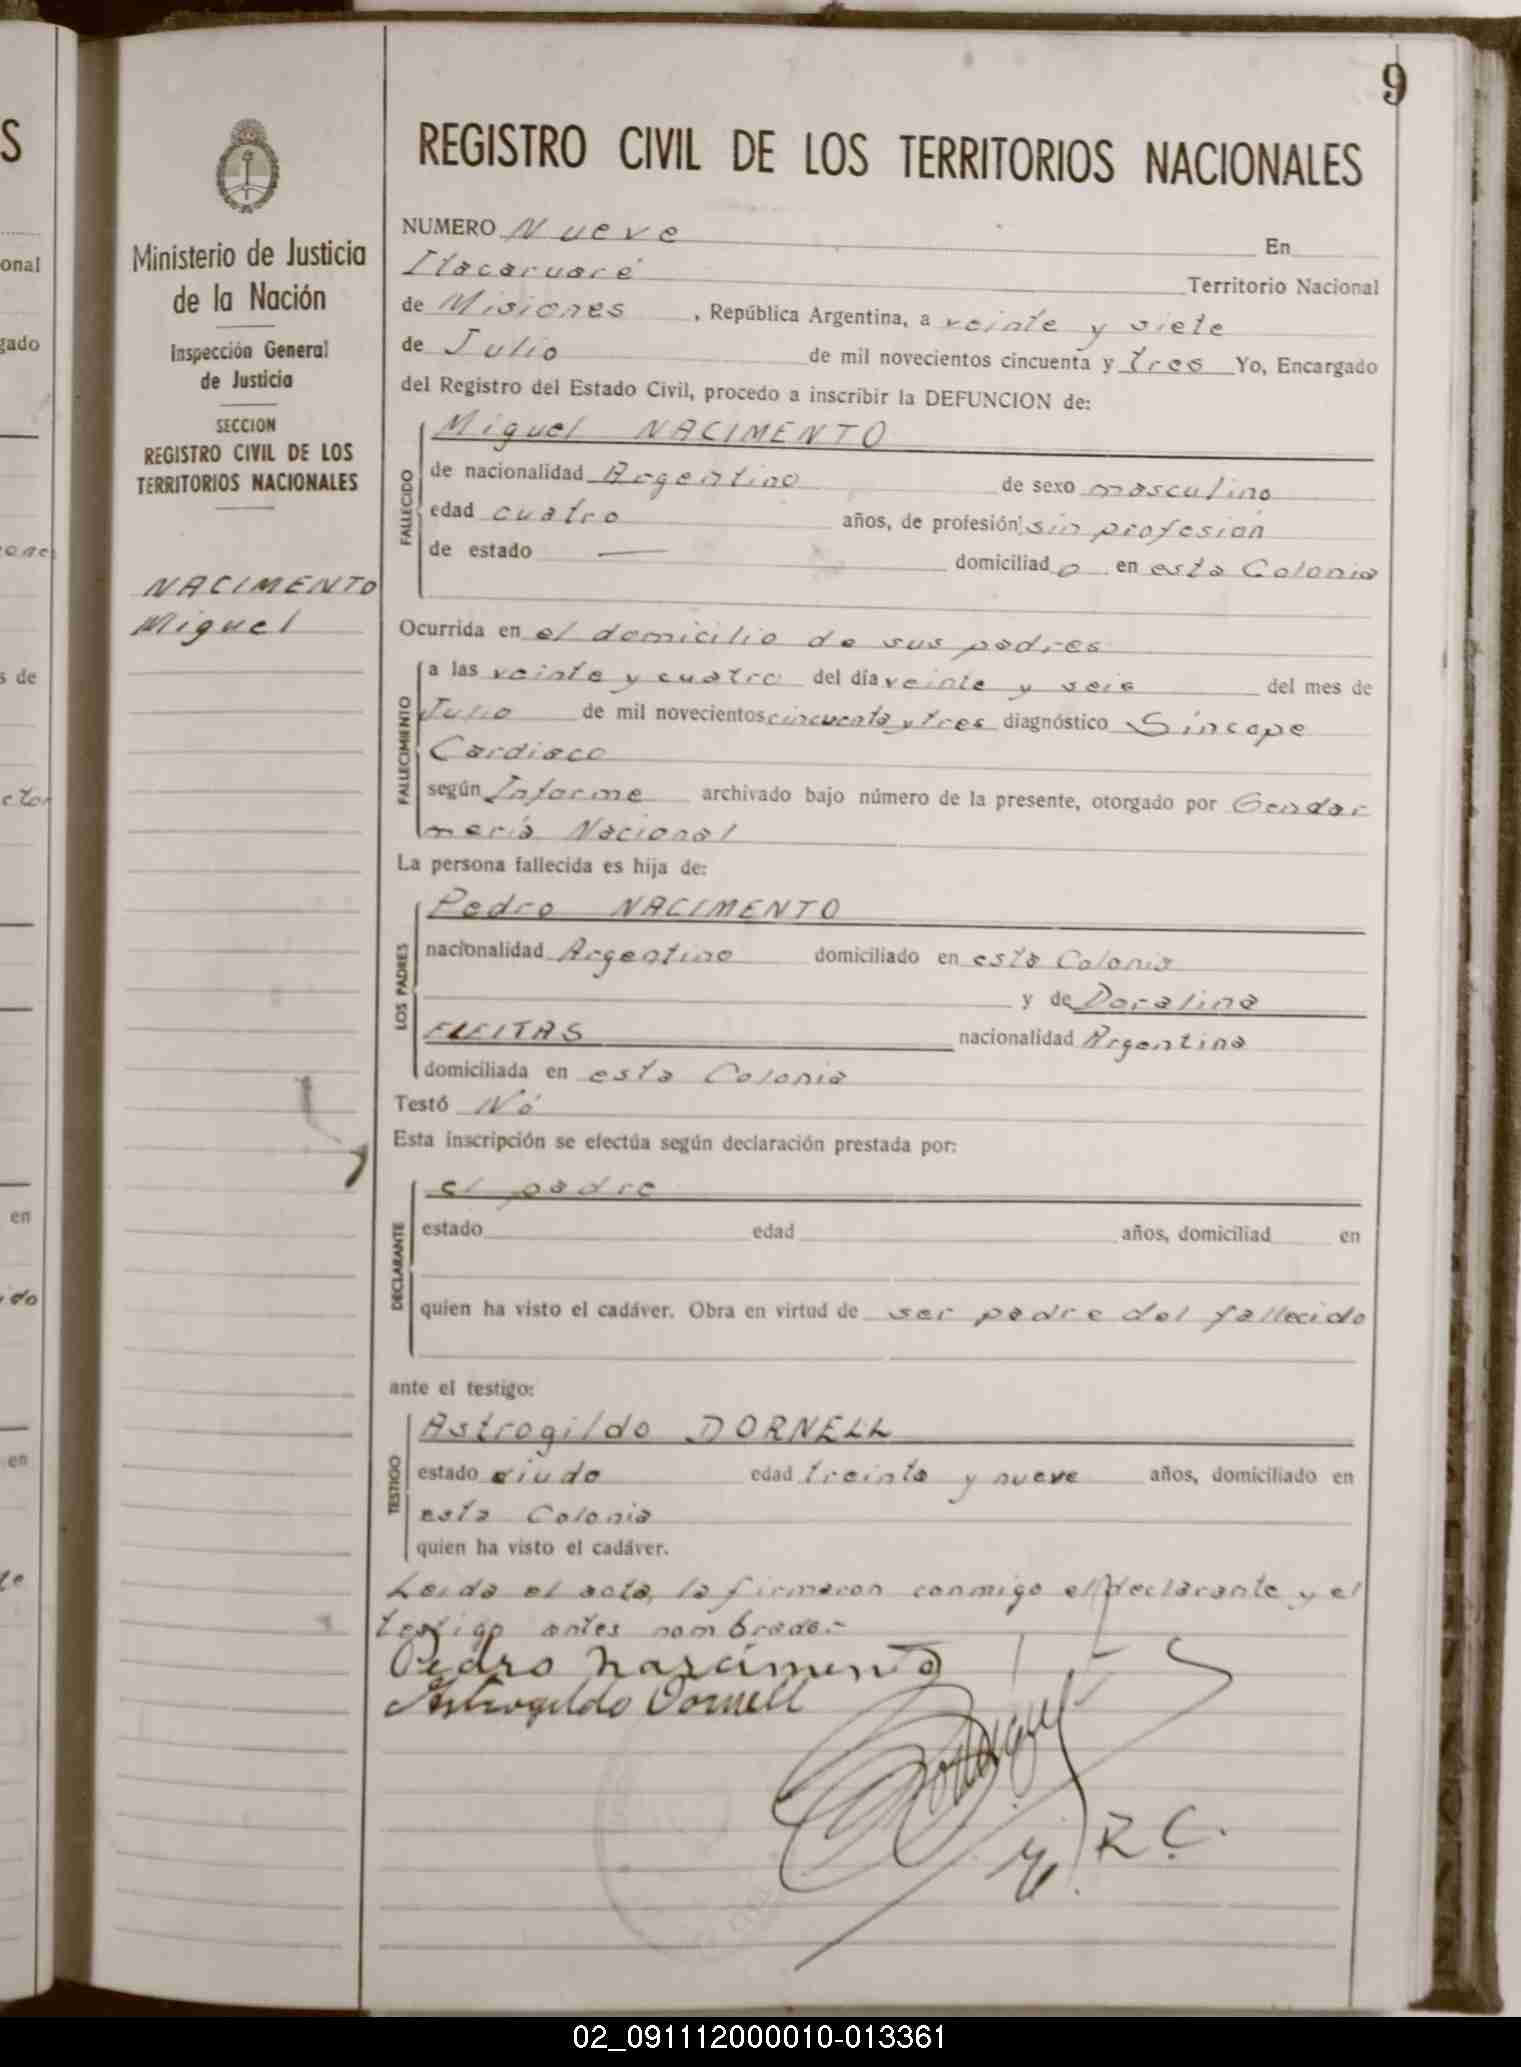 9
S
REGISTRO CIVIL DE LOS TERRITORIOS NACIONALES
Ministerio de Justicia
de la Nación
Inspección General
de Justicia
SECCION
REGISTRO CIVIL DE LOS
TERRITORIOS NACIONALES
NACIMENTO
Miguel
onal
gado
s de
ctor
en
ido
en
NUMERO Nueve En
Itacaruaré Territorio Nacional
de Misiones , República Argentina, a veinte y siete
de Julio de mil novecientos cincuenta y tres Yo, Encargado
del Registro del Estado Civil, procedo a inscribir la DEFUNCION de:
FALLECIDO
Miguel NACIMENTO
de nacionalidad Argentino de sexo masculino
edad cuatro años, de profesión sin profesion
de estado — domiciliado en esta Colonia
Ocurrida en el domicilio de sus padres
FALLECIMIENTO
a las veinte y cuatro del día veinte y seis del mes de
Julio de mil novecientos cincuenta y tres diagnóstico Síncope
Cardiaco
según Informe archivado bajo número de la presente, otorgado por Gendar
mería Nacional
La persona fallecida es hija de:
LOS PADRES
Pedro NACIMENTO
nacionalidad Argentino domiciliado en esta Colonia
y de Doralina
FLEITAS nacionalidad Argentina
domiciliada en esta Colonia
Testó Nó
Esta inscripción se efectúa según declaración prestada por:
DECLARANTE
el padre
estado edad años, domiciliad en
quien ha visto el cadáver. Obra en virtud de ser padre del fallecido
ante el testigo:
TESTIGO
Astrogildo DORNELL
estado viudo edad treinta y nueve años, domiciliado en
esta Colonia
quien ha visto el cadáver.
Leída el acta, la firmaron conmigo el declarante y el
testigo antes nombrado.-
Pedro Nascimento
Astrogildo Dornell
R. C.
02_091112000010-013361